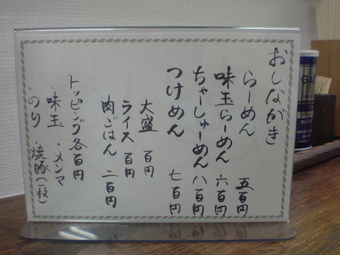 おしながき
らーめん 五百円
味玉らーめん 六百円
ちゃーしゅーめん 八百円
つけめん 七百円
大盛 百円
ライス 百円
肉ごはん 二百円
トッピング各百円
味玉・メンマ
のり 焼豚(一枚)